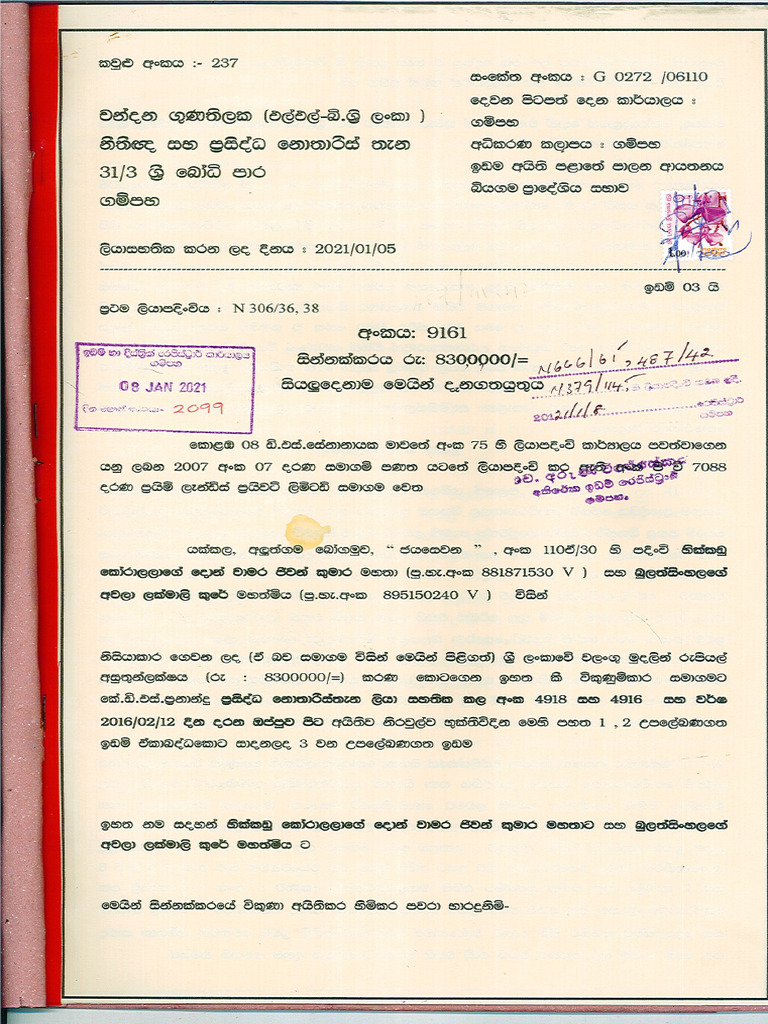 කවුළු අංකය :- 237
සංකේත අංකය : G 0272 /06110
දෙවන පිටපත් දෙන කාර්යාලය :
ගම්පහ
අධිකරණ කලාපය : ගම්පහ
ඉඩම අයිති පළාතේ පාලන ආයතනය
බියගම ප්‍රාදේශීය සභාව
චන්දන ගුණතිලක (එල්එල්-බි.ශ්‍රි ලංකා )
නීතිඥ සහ ප්‍රසිද්ධ නොතාරිස් තැන
31/3 ශ්‍රී බෝධි පාර
ගම්පහ
1.00
ලියාසහතික කරන ලද දිනය : 2021/01/05
ඉඩම් 03 යි
ප්‍රථම ලියාපදිංචිය : N 306/36, 38
අංකය: 9161
සින්නක්කරය රු: 8300,000/=
සියලුදෙනාම මෙයින් දැනගතයුතුය
N666/61, 487/42
N379/145
2021/1/8
රෙජිස්ට්‍රාර්
ගම්පහ
ඉඩම් හා දිස්ත්‍රික් රෙජිස්ට්‍රාර් කාර්යාලය
ගම්පහ
08 JAN 2021
2099
කොළඹ 08 ඩී.එස්.සේනානායක මාවතේ අංක 75 හි ලියාපදිංචි කාර්යාලය පවත්වාගෙන
යනු ලබන 2007 අංක 07 දරණ සමාගම් පණත යටතේ ලියාපදිංචි කර ඇති අංක පී වී 7088
දරණ ප්‍රයිම් ලෑන්ඩ්ස් ප්‍රයිවට් ලිමිටඩ් සමාගම වෙත
අතිරේක ඉඩම් රෙජිස්ට්‍රාර්
ගම්පහ.
යක්කල, අලුත්ගම බෝගමුව, “ ජයසෙවන ” , අංක 110ඒ/30 හි පදිංචි හික්කඩු
කෝරාලලාගේ දොන් චාමර ජීවන් කුමාර මහතා (පු.හැ.අංක 881871530 V ) සහ බුලත්සිංහලගේ
අචලා ලක්මාලි කුරේ මහත්මිය (පු.හැ.අංක 895150240 V ) විසින්
නිසියාකාර ගෙවන ලද (ඒ බව සමාගම විසින් මෙයින් පිළිගත්) ශ්‍රී ලංකාවේ වලංගු මුදලින් රුපියල්
අසූතුන්ලක්ෂය (රු : 8300000/=) කරණ කොටගෙන ඉහත කී විකුණුම්කාර සමාගමට
කේ.ඩී.එස්.ප්‍රනාන්දු ප්‍රසිද්ධ නොතාරිස්තැන ලියා සහතික කල අංක 4918 සහ 4916 සහ වර්ෂ
2016/02/12 දින දරන ඔප්පුව පිට අයිතිව නිරවුල්ව භුක්තිවිදින මෙහි පහත 1 , 2 උපලේඛණගත
ඉඩම් ඒකාබද්ධකොට සාදනලද 3 වන උපලේඛණගත ඉඩම
ඉහත නම සදහන් හික්කඩු කෝරාලලාගේ දොන් චාමර ජීවන් කුමාර මහතාට සහ බුලත්සිංහලගේ
අචලා ලක්මාලි කුරේ මහත්මිය ට
මෙයින් සින්නක්කරයේ විකුණා අයිතිකර හිමිකර පවරා භාරදුනිමි-